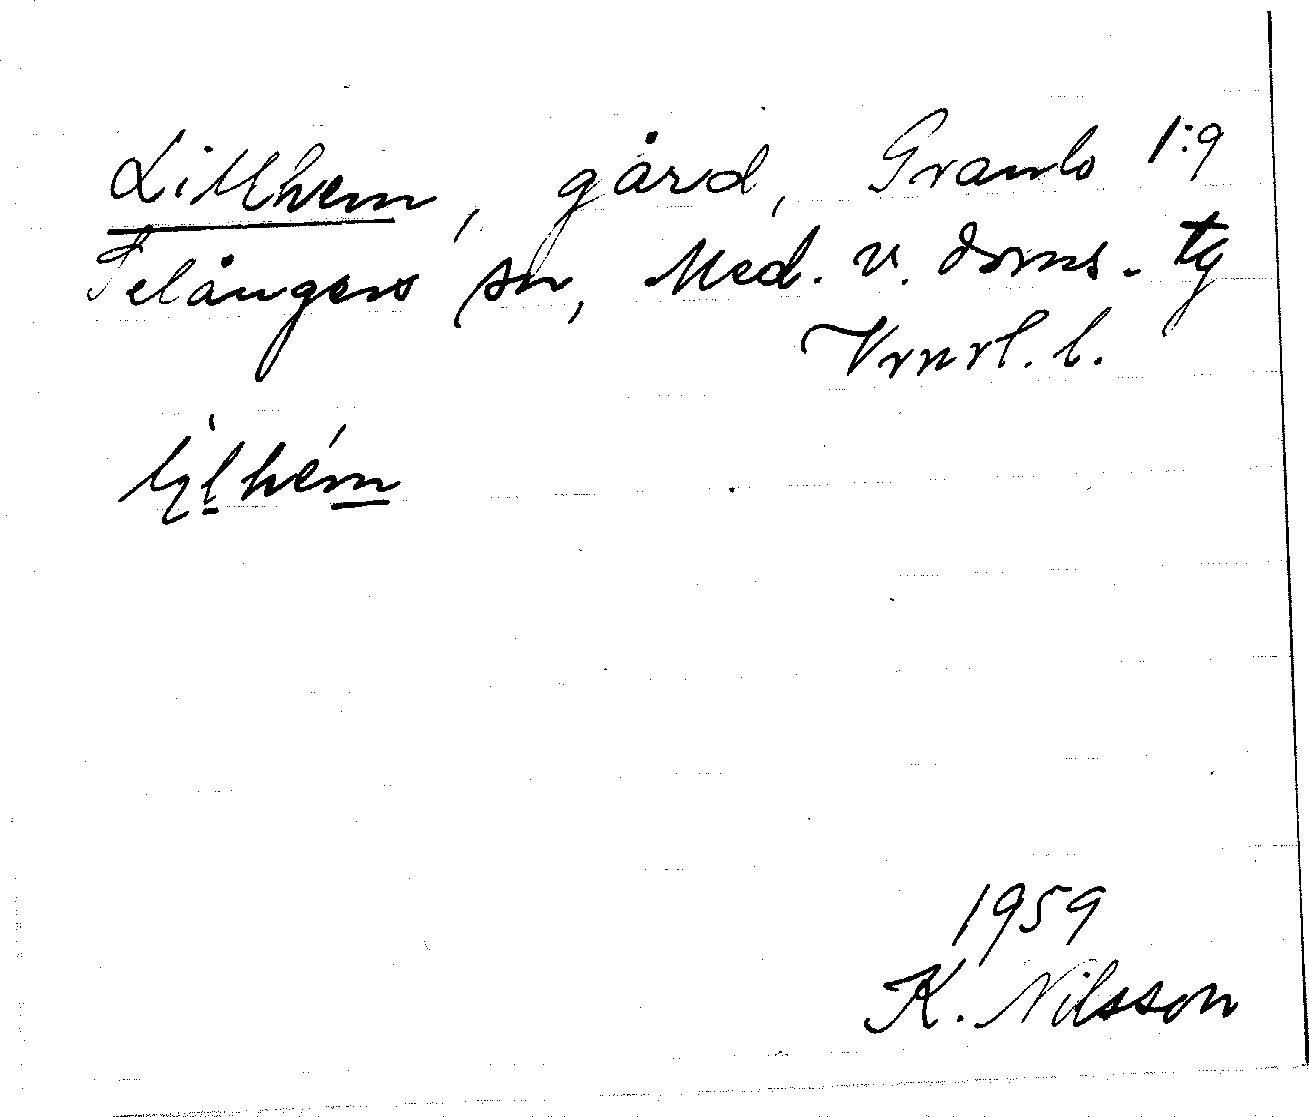 Lillhem, gård, Granlo 1:9
Selångers sn, Med. v. doms. tg
Vrnrl. l.
lịl̲hém̲
1959
K. Nilsson